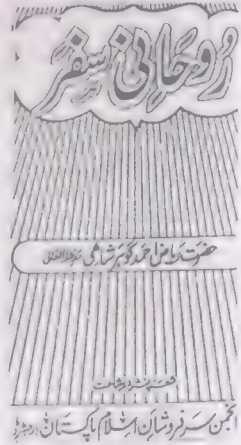 رُوحَانی سفر
حضرت ریاض احمد گوہر شاہی مدظلہ العالی
انجمن سرفروشانِ اسلام پاکستان